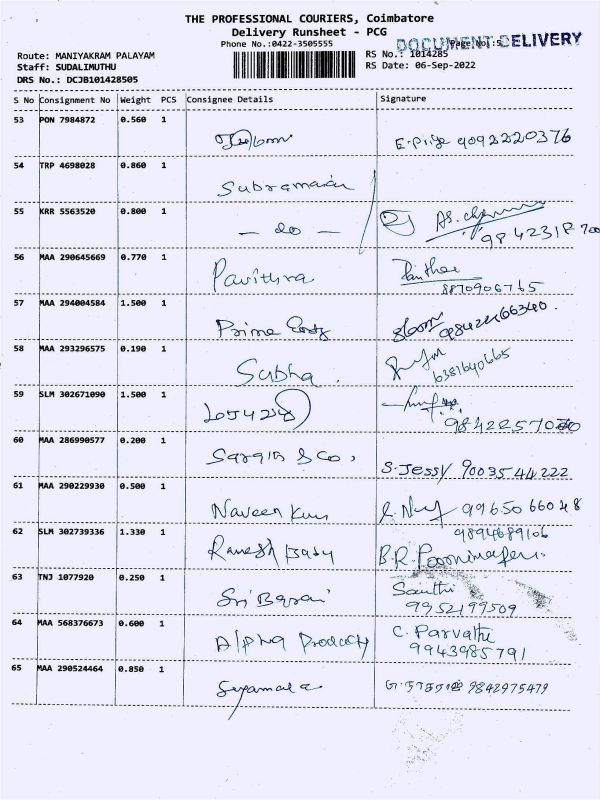 THE PROFESSIONAL COURIERS, Coimbatore
Delivery Runsheet - PCG
Phone No.:0422-3505555
DOCUMENT DELIVERY
Page No.:5
Route: MANIYAKRAM PALAYAM
RS No.: 1014285
Staff: SUDALIMUTHU
RS Date: 06-Sep-2022
DRS No.: DCJB101428505
S No Consignment No Weight PCS Consignee Details Signature
53 PON 7984872 0.560 1
E. Priya 9092220376
54 TRP 4698028 0.860 1
Subramanian
55 KRR 5563520 0.800 1
- do -
9842318700
56 MAA 290645669 0.770 1
Pavithra
8870906765
57 MAA 294004584 1.500 1
Prime
58 MAA 293296575 0.190 1
Subha.
6381640665
59 SLM 302671090 1.500 1
60 MAA 286990577 0.200 1
& Co,
S. Jessy 9003544222
61 MAA 290229930 0.500 1
Naveen Kum
9965066048
62 SLM 302739336 1.330 1
9894689106
Ramesh Babu
B.R.
63 TNJ 1077920 0.250 1
Sri
Santhi
9952199509
64 MAA 568376673 0.600 1
Alpha Products
C. Parvathi
9943985791
65 MAA 290524464 0.850 1
Syamala
9842975479